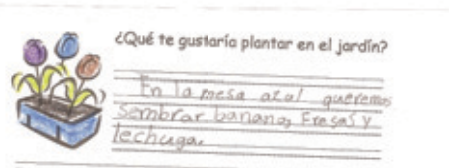 ¿Qué te gustaría plantar en el jardín?
En la mesa azal queremos
sembrar banana, Fresas y
lechuga.